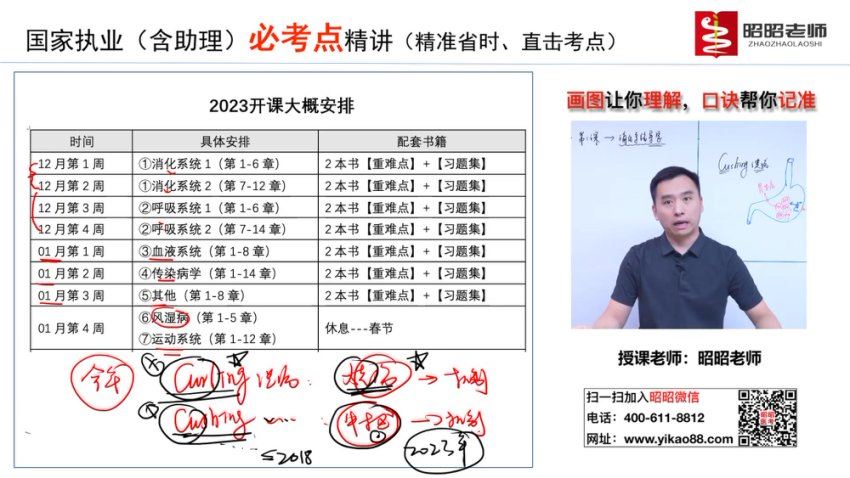 国家执业（含助理）必考点精讲（精准省时、直击考点）
昭昭老师
ZHAOZHAOLAOSHI
2023开课大概安排
时间 具体安排 配套书籍
12 月第 1 周 ①消化系统 1（第 1-6 章） 2 本书【重难点】+【习题集】
12 月第 2 周 ①消化系统 2（第 7-12 章） 2 本书【重难点】+【习题集】
12 月第 3 周 ②呼吸系统 1（第 1-6 章） 2 本书【重难点】+【习题集】
12 月第 4 周 ②呼吸系统 2（第 7-14 章） 2 本书【重难点】+【习题集】
01 月第 1 周 ③血液系统（第 1-8 章） 2 本书【重难点】+【习题集】
01 月第 2 周 ④传染病学（第 1-14 章） 2 本书【重难点】+【习题集】
01 月第 3 周 ⑤其他（第 1-8 章） 2 本书【重难点】+【习题集】
01 月第 4 周 ⑥风湿病（第 1-5 章） 休息---春节
⑦运动系统（第 1-12 章）
今年 Curling 溃疡
Cushing
≤2018 2023年
画图让你理解，口诀帮你记准
Cushing 溃疡
授课老师：昭昭老师
扫一扫加入昭昭微信
电话：400-611-8812
网址：www.yikao88.com
昭昭医考